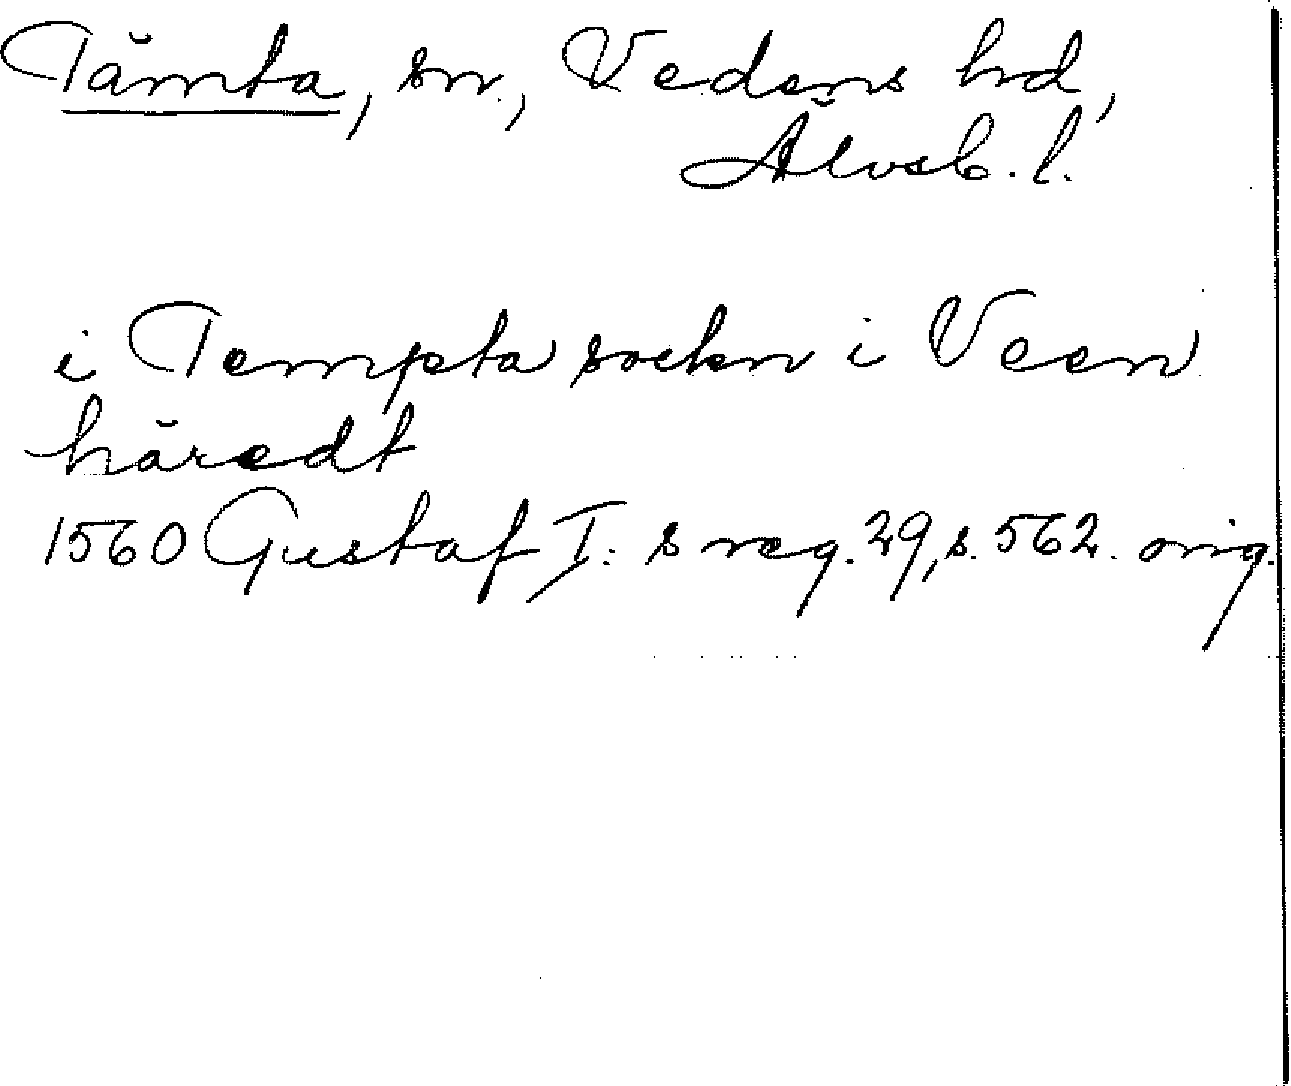 Tämta, sn., Vedens hd,
Älvsb. l.
i Tempta sockn i Veen
häredt
1560 Gustaf I:s reg. 29, s. 562. orig.